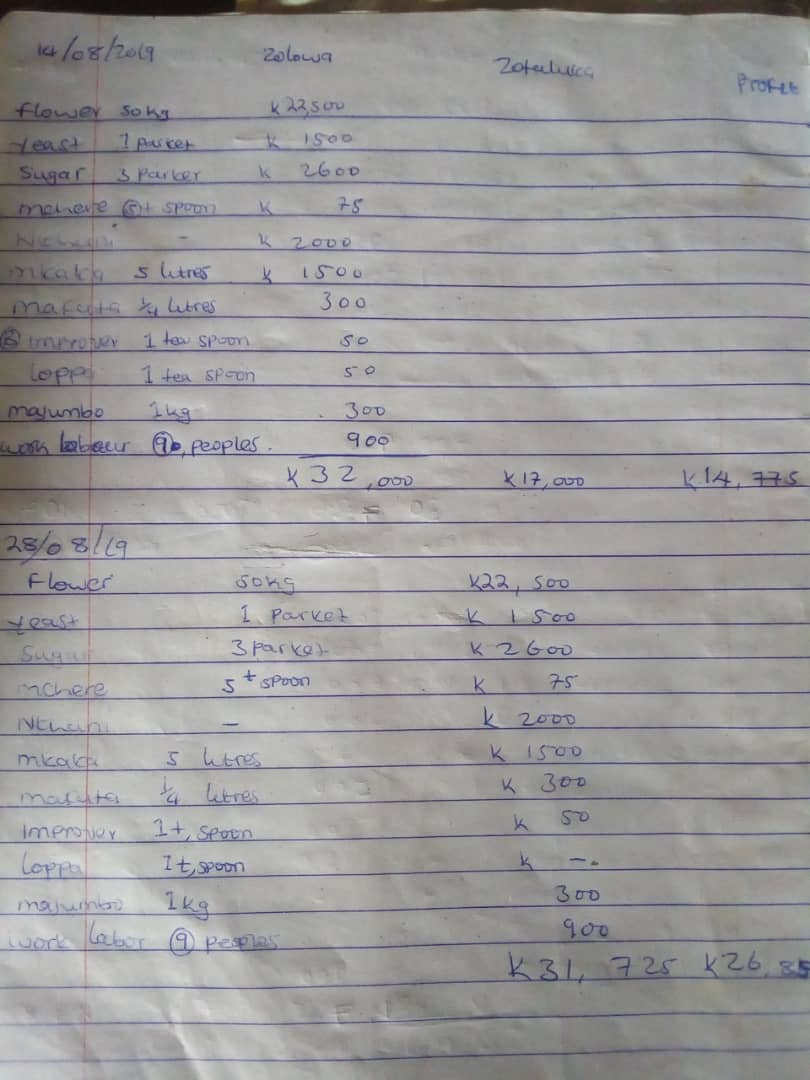 14/08/2019 Zolowa Zotuluka Profit
flower 50kg K22,500
yeast 1 Parket K 1500
Sugar 3 Parker K 2600
mchere 5 t spoon K 75
Nkhuni - K 2000
mkaka 5 litres K 1500
mafuta 1/4 litres 300
improver 1 tea spoon 50
Loppa 1 tea spoon 50
majumbo 1kg 300
work labour 9 peoples. 900
K32,000 K17,000 K14,775
28/08/19
Flower 50kg K22,500
yeast 1 Parket K 1500
Sugar 3 Parket K 2600
mchere 5 t spoon K 75
Nkhuni - K 2000
mkaka 5 litres K 1500
mafuta 1/4 litres K 300
Improver 1 t, spoon K 50
Loppa 1 t, spoon K -.
majumbo 1kg 300
work labor 9 peoples 900
K31,725 K26,85